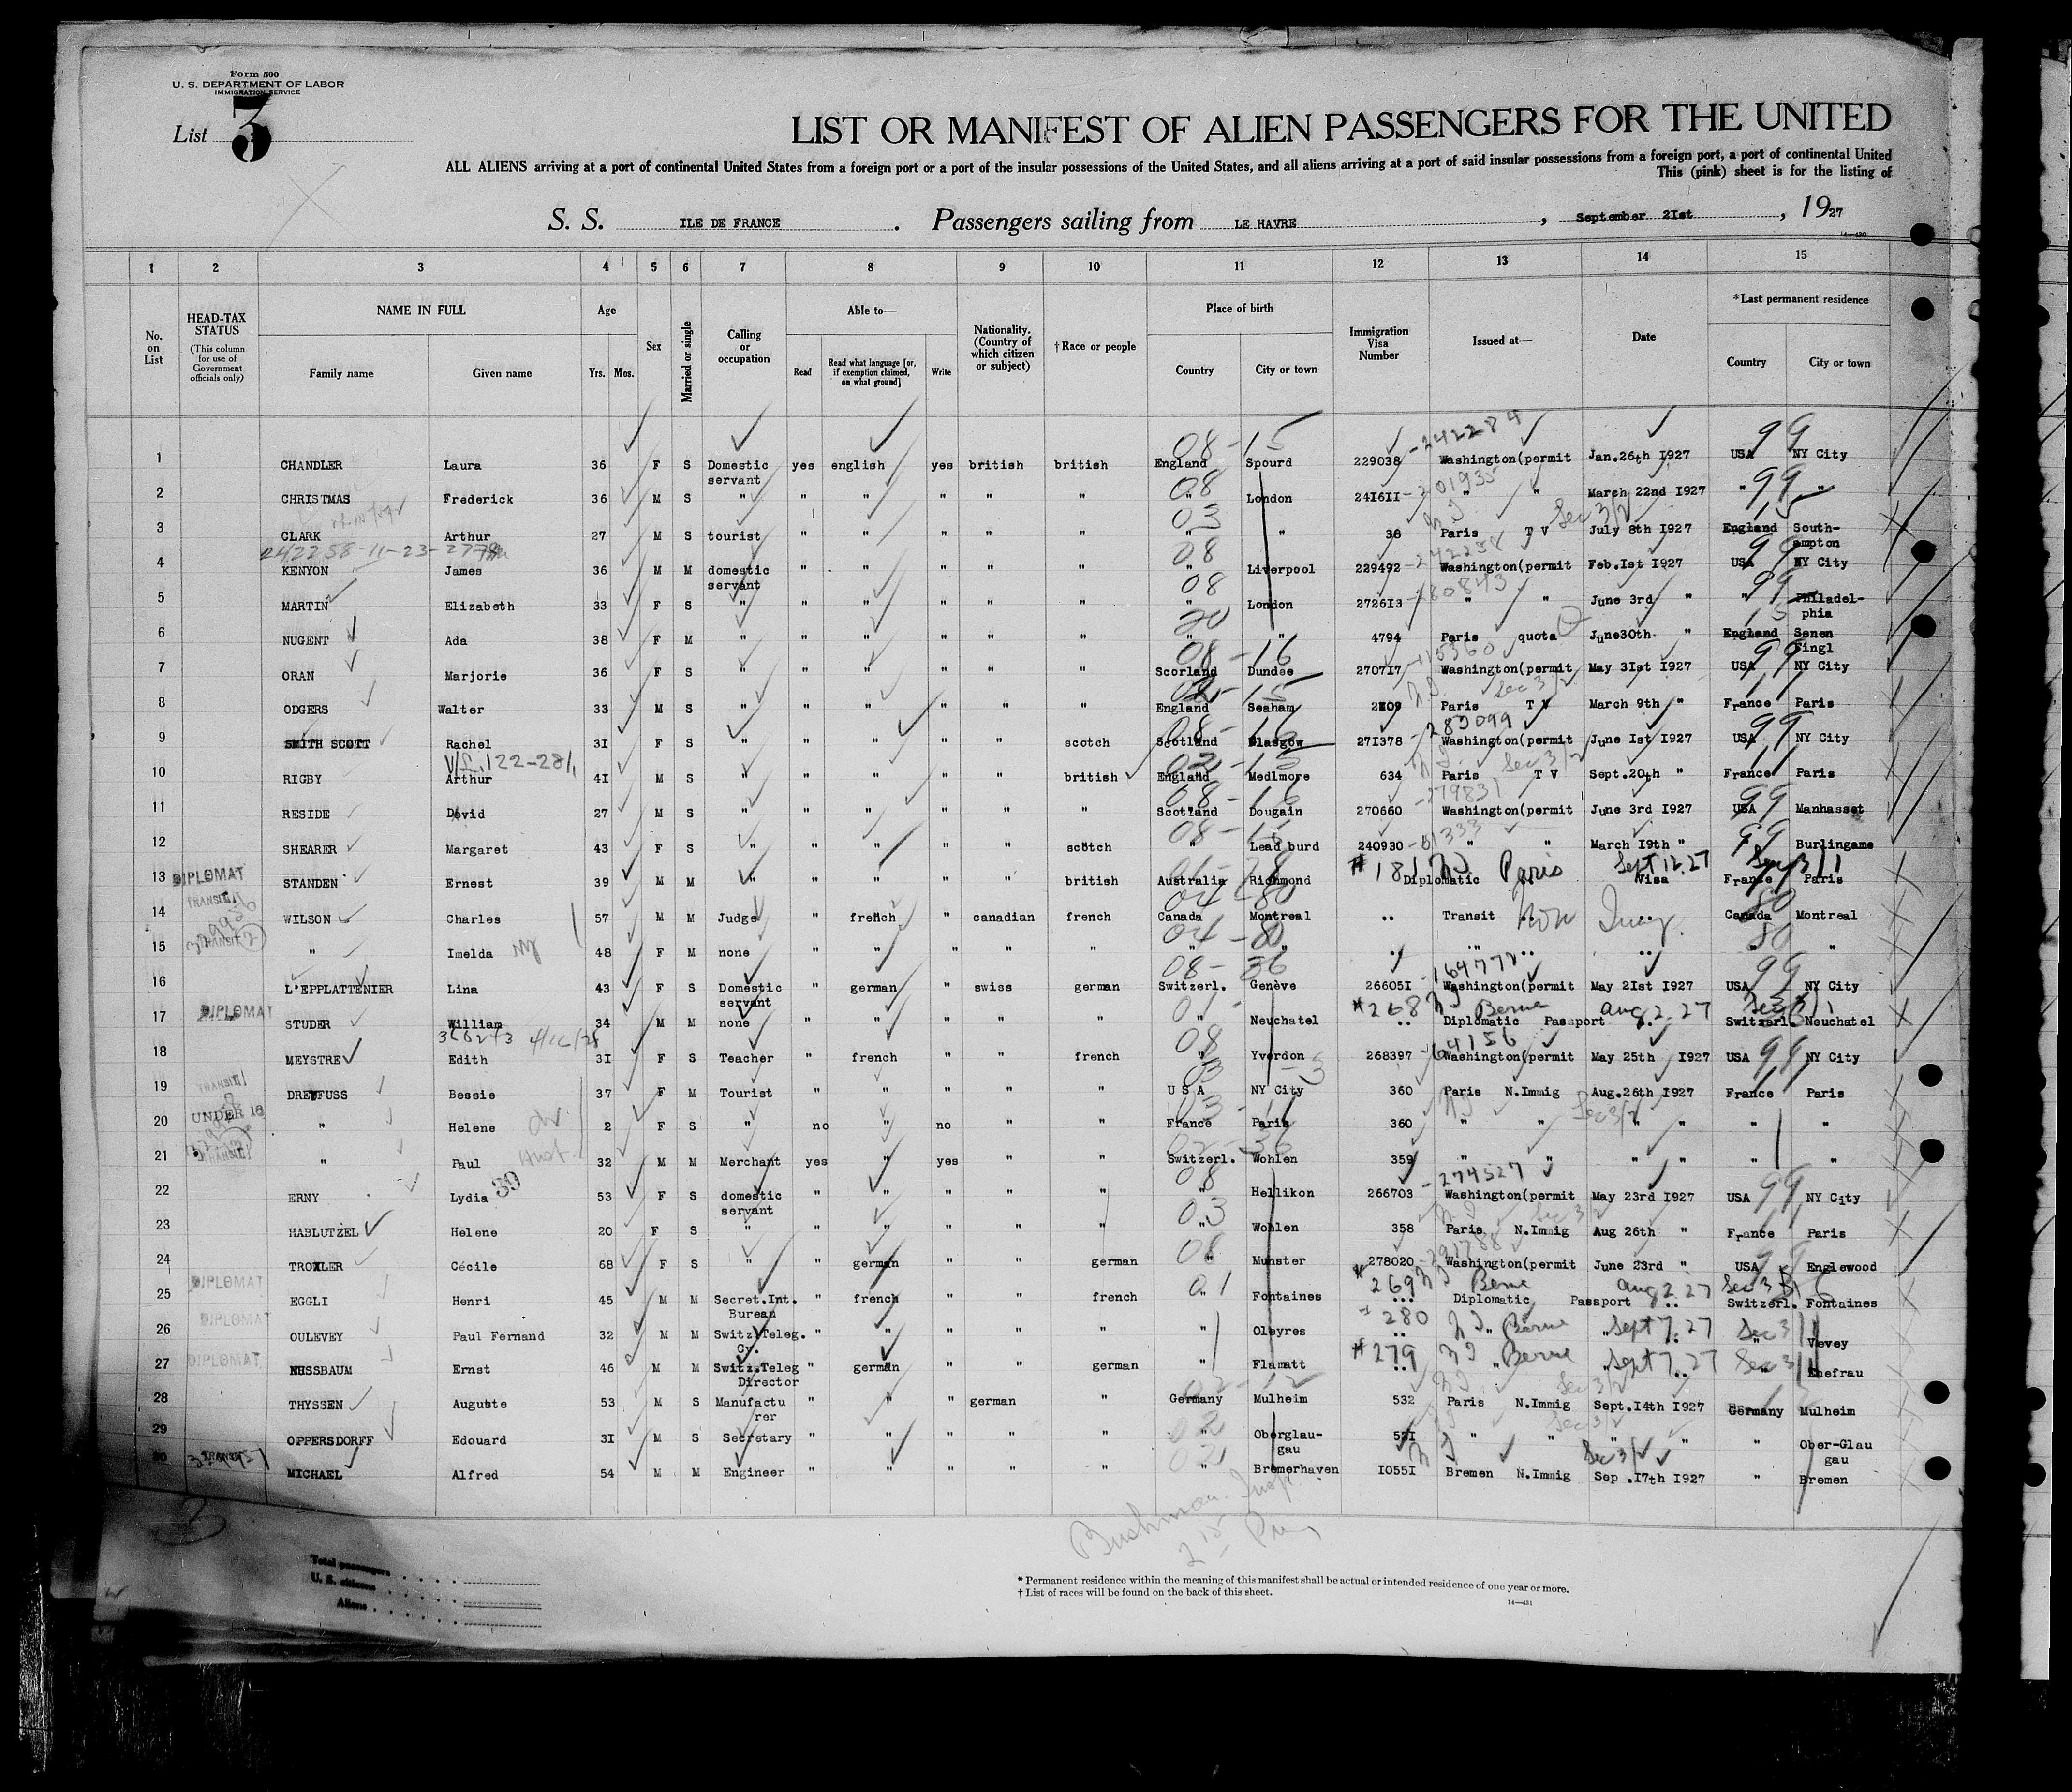 Form 500
U. S. DEPARTMENT OF LABOR
IMMIGRATION SERVICE
List 3
LIST OR MANIFEST OF ALIEN PASSENGERS FOR THE UNITED
ALL ALIENS arriving at a port of continental United States from a foreign port or a port of the insular possessions of the United States, and all aliens arriving at a port of said insular possessions from a foreign port, a port of continental United
This (pink) sheet is for the listing of
S. S. ILE DE FRANCE . Passengers sailing from LE HAVRE , September 2Ist , 1927
1 2 3 4 5 6 7 8 9 10 11 12 13 14 15
No. on List
HEAD-TAX STATUS (This column for use of Government officials only)
NAME IN FULL Family name Given name
Age Yrs. Mos.
Sex
Married or single
Calling or occupation
Able to— Read Read what language [or, if exemption claimed, on what ground] Write
Nationality. (Country of which citizen or subject)
†Race or people
Place of birth Country City or town
Immigration Visa Number
Issued at—
Date
*Last permanent residence Country City or town
1 CHANDLER Laura 36 F S Domestic servant yes english yes british british England Spourd 229038 Washington(permit Jan.26th I927 USA NY City
2 CHRISTMAS Frederick 36 M S " " " " " " " London 24I6II " " March 22nd I927 " "
3 CLARK Arthur 27 M S tourist " " " " " " " 36 Paris T V July 8th I927 England South-ampton
4 KENYON James 36 M M domestic servant " " " " " " Liverpool 229492 Washington(permit Feb.Ist I927 USA NY City
5 MARTIN Elizabeth 33 F S " " " " " " " London 2726I3 " " June 3rd " " Philadel-phia
6 NUGENT Ada 38 F M " " " " " " " " 4794 Paris quota June30th " England Senen Fingl
7 ORAN Marjorie 36 F S " " " " " " Scorland Dundee 2707I7 Washington(permit May 3Ist I927 USA NY City
8 ODGERS Walter 33 M S " " " " " " England Seaham Paris T V March 9th " France Paris
9 SMITH SCOTT Rachel 3I F S " " " " " scotch Scotland Glasgow 27I378 Washington(permit June Ist I927 USA NY City
10 RIGBY Arthur 4I M S " " " " " british England Medlmore 634 Paris T V Sept.20th " France Paris
11 RESIDE David 27 M S " " " " " " Scotland Dougain 270660 Washington(permit June 3rd I927 USA Manhasset
12 SHEARER Margaret 43 F S " " " " " scotch " Lead burd 240930 " " March I9th " " Burlingame
13 DIPLOMAT STANDEN Ernest 39 M M " " " " " british Australia Richmond #181 Diplomatic Paris Sept 12.27 Visa France Paris
14 TRANSIT WILSON Charles 57 M M Judge " french " canadian french Canada Montreal .. Transit .. .. Canada Montreal
15 TRANSIT " Imelda 48 F M none " " " " " " " .. .. .. " "
16 L'EPPLATTENIER Lina 43 F S Domestic servant " german " swiss german Switzerl. Genève 26605I Washington(permit May 2Ist I927 USA NY City
17 DIPLOMAT STUDER William 34 M M none " " " " " " Neuchatel #268 Berne Aug 2.27 .. Diplomatic Passport .. Switzerl. Neuchatel
18 MEYSTRE Edith 3I F S Teacher " french " " french " Yverdon 268397 Washington(permit May 25th I927 USA NY City
19 TRANSIT DREYFUSS Bessie 37 F M Tourist " " " " " U S A NY City 360 Paris N.Immig Aug.26th I927 France Paris
20 UNDER 16 " Helene 2 F S " no " no " " France Paris 360 " " " " " "
21 TRANSIT " Paul 32 M M Merchant yes " yes " " Switzerl. Wohlen 359 " " " " " "
22 ERNY Lydia 53 F S domestic servant " " " " " " Hellikon 266703 Washington(permit May 23rd I927 USA NY City
23 HABLUTZEL Helene 20 F S " " " " " " " Wohlen 358 Paris N.Immig Aug 26th " France Paris
24 TROXLER Cécile 68 F S " " german " " german " Munster 278020 Washington(permit June 23rd " USA Englewood
25 DIPLOMAT EGGLI Henri 45 M M Secret.Int. Bureau " french " " french " Fontaines #269 Berne Aug 2 27 ... Diplomatic Passport .. Switzerl. Fontaines
26 DIPLOMAT OULEVEY Paul Fernand 32 M M Switz.Teleg. Cy. " " " " " " Oleyres 280 Berne Sept 7.27 " Vevey
27 DIPLOMAT NUSSBAUM Ernst 46 M M Switz.Teleg Director " german " " german " Flamatt #279 Berne Sept 7.27 " Ehefrau
28 THYSSEN Auguste 53 M S Manufactu rer " " " german " Germany Mulheim 532 Paris N.Immig Sept.I4th I927 Germany Mulheim
29 OPPERSDORFF Edouard 3I M S Secretary " " " " " " Oberglau-gau 53I " " " " " Ober-Glau gau
30 MICHAEL Alfred 54 M M Engineer " " " " " " Bremerhaven I055I Bremen N.Immig Sep.I7th I927 " Bremen
Total passengers
U. S. citizens
Aliens
* Permanent residence within the meaning of this manifest shall be actual or intended residence of one year or more.
† List of races will be found on the back of this sheet.
14—431